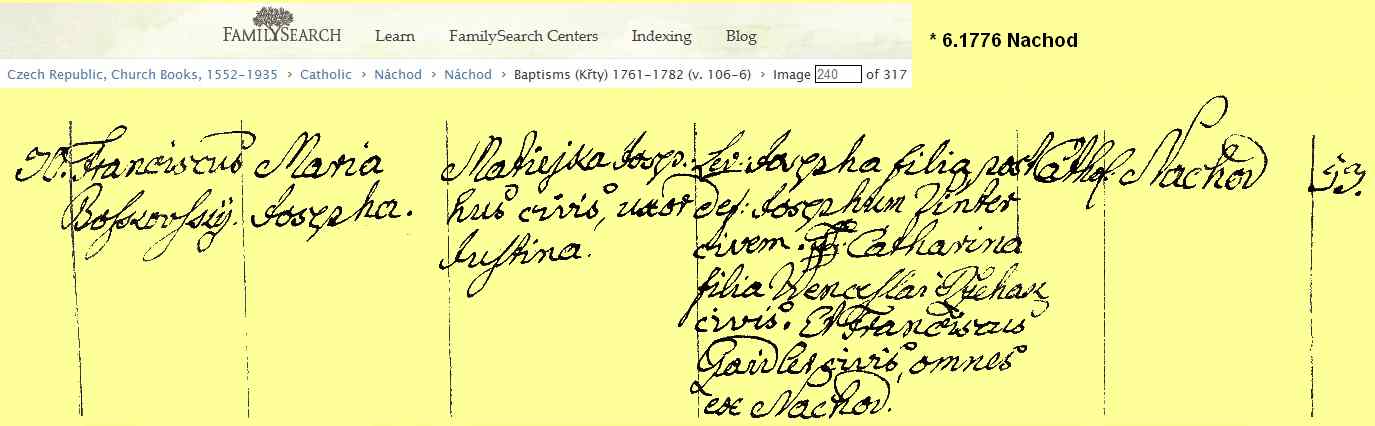 FAMILYSEARCH Learn FamilySearch Centers Indexing Blog
* 6.1776 Nachod
Czech Republic, Church Books, 1552-1935 > Catholic > Náchod > Náchod > Baptisms (Křty) 1761-1782 (v. 106-6) > Image 240 of 317
Franciscus Maria Matiejka Josep: Lev: Josepha filia post Cathol: Nachod 53.
Josepha. hus civis, uxor def: Josephum Vinter
Justina. civem. Catharina
filia Wenceslai
civis. Et Franciscus
civis, omnes
ex Nachod.